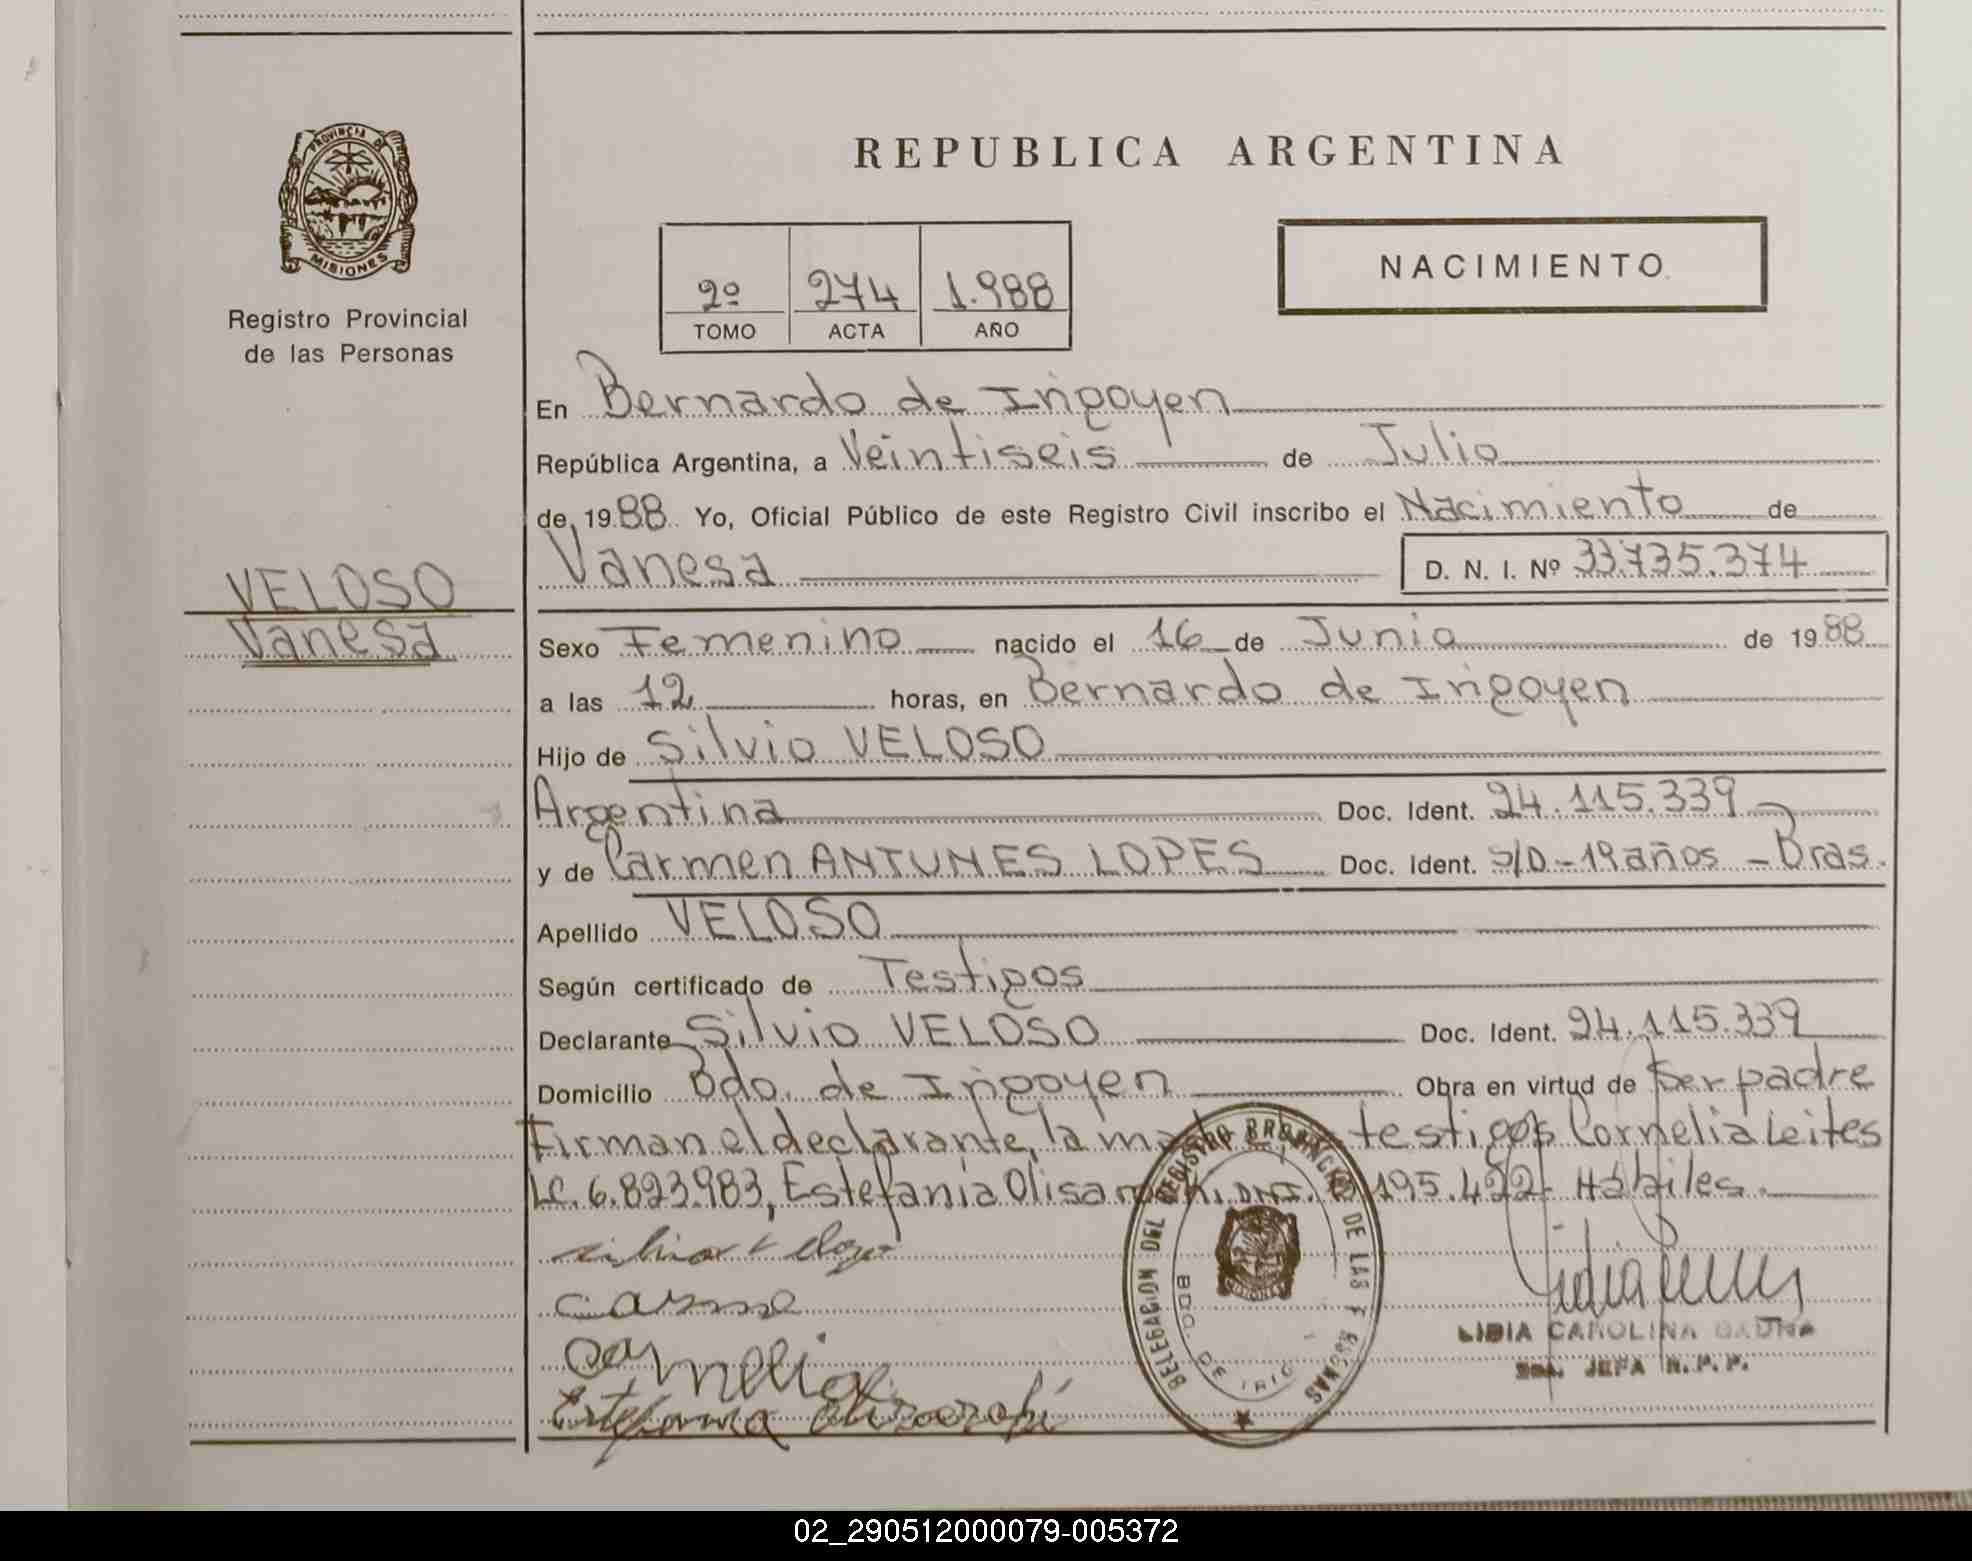 PROVINCIA DE
MISIONES
Registro Provincial
de las Personas
VELOSO
Vanesa
REPUBLICA ARGENTINA
2º 274 1.988
TOMO ACTA AÑO
NACIMIENTO
En Bernardo de Irigoyen
República Argentina, a Veintiseis de Julio
de 1988 Yo, Oficial Público de este Registro Civil inscribo el Nacimiento de
Vanesa D. N. I. Nº 33.735.374
Sexo Femenino nacido el 16 de Junio de 1988
a las 12 horas, en Bernardo de Irigoyen
Hijo de Silvio VELOSO
Argentina Doc. Ident. 24.115.339
y de Carmen ANTUNES LOPES Doc. Ident. S/D-19 años - Bras.
Apellido VELOSO
Según certificado de Testigos
Declarante Silvio VELOSO Doc. Ident. 24.115.339
Domicilio Bdo. de Irigoyen Obra en virtud de Ser padre
Firman el declarante, la testigos Cornelia Leites
LC. 6.823.983, Estefania DNI. 195.422 Hábiles.
DELEGACION DEL REGISTRO PROVINCIAL DE LAS PERSONAS
BDO. DE IRIG
MISIONES
LIDIA CAROLINA GAUNA
2da. JEFA R.P.P.
02_290512000079-005372